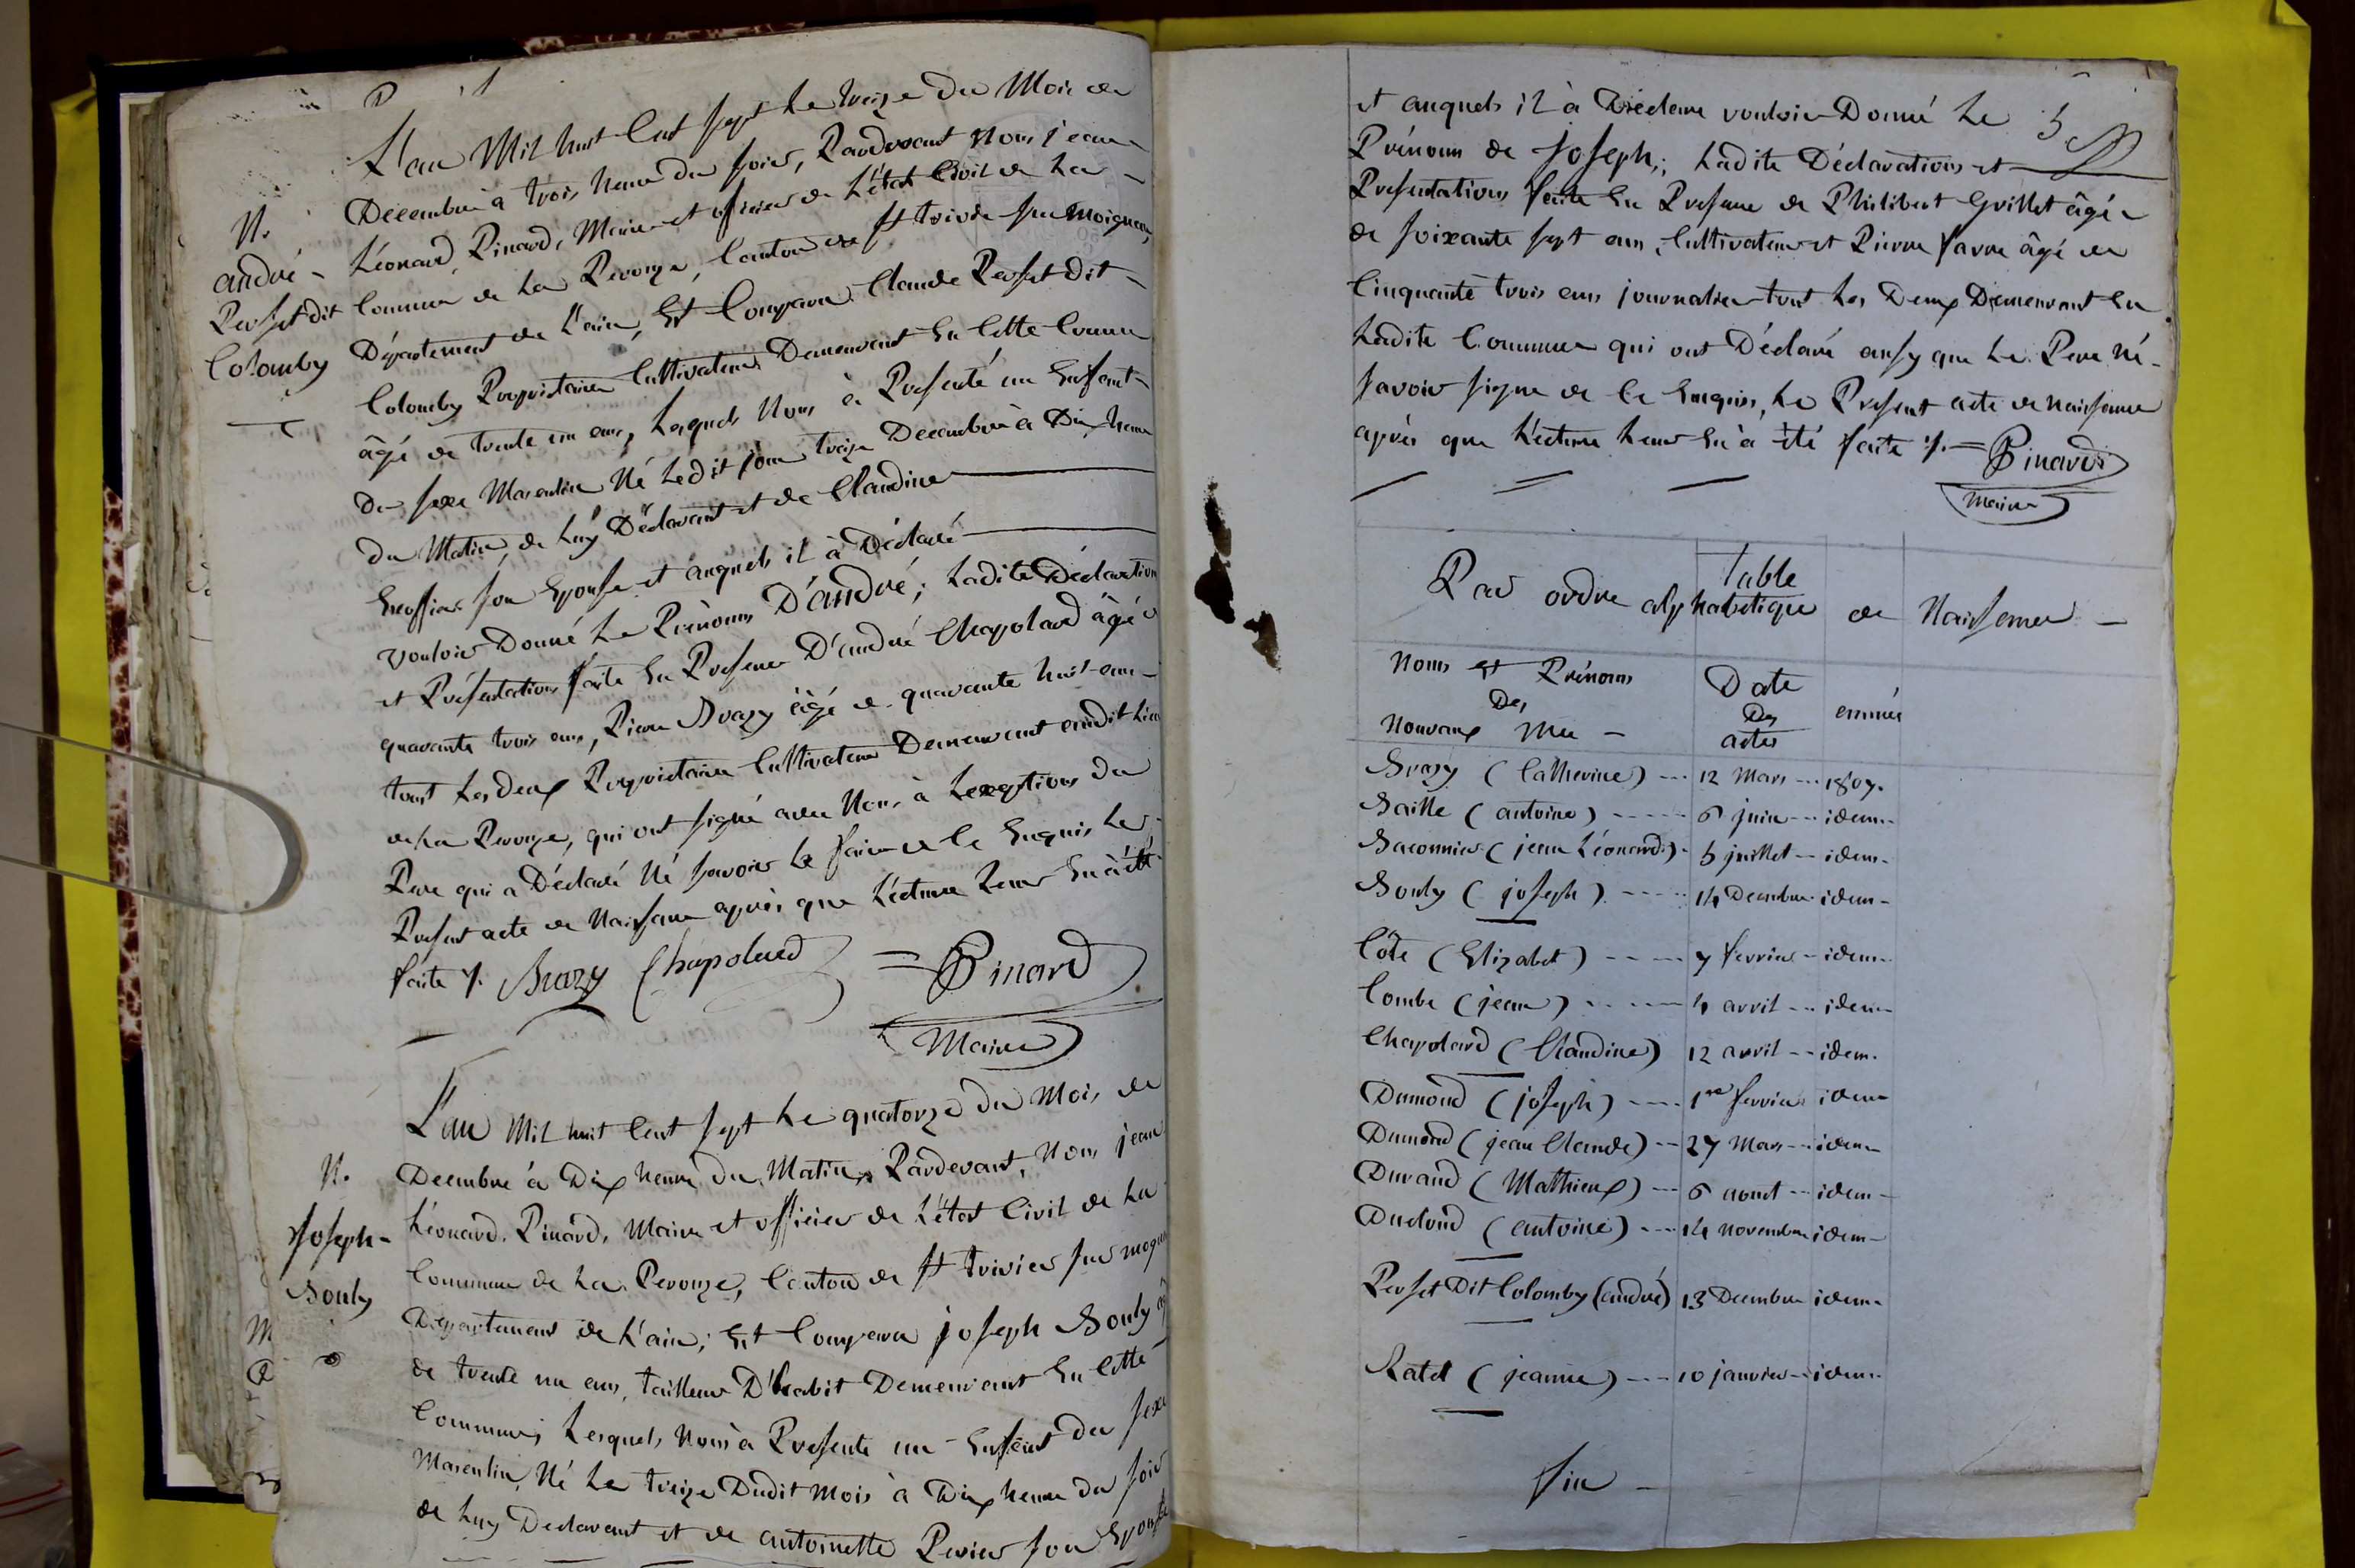 L'an Mil huit Cent sept Le treize Du Mois de
Decembre à trois heure du soir, Pardevant Nous jean
Léonard, Pinard, Maire et officier de L'état Civil de La
Commune de La Perouze, Canton de St trivier sur Moignan,
Département de L'ain, Est Comparu Claude Perset Dit
Colomby Propriétaire Cultivateur Demeurant En Cette Commune
âgé de trente un ans, Lequels Nous à Presenté un Enfant
du sexe Masculin Né Ledit jour treize Decembre à Dix heure
du Matin, de Luy Déclarant et de Claudine
son Epouse et auquels il à Déclaré
vouloir Donné Le Prénoms D'andré; Ladite Déclaration
et Présentations faite En Presence D'andré Chapolard âgé
quarante trois ans, Pierre Brazy âgé de quarante huit ans
tout Les deux Propriétaire Cultivateur Demeurant audit Lieu
de La Perouze, qui ont signé avec Nous à Lexeptions du
Pere qui a Déclaré Né savoir Le faire de Ce Enquis Le
Present acte de Naissance après que Lecture Leur En à été
faite ./. Brazy Chapolard = Pinard
Maire
N.
andré
Perset dit
Colomby
L'an Mil huit Cent sept Le quatorze du Mois de
Decembre à Dix heure du Matin, Pardevant, Nous jean
Léonard, Pinard, Maire et officier de L'état Civil de La
Commune de La Perouze, Canton de St trivier sur mogn
Departement de L'ain; Est Comparu joseph Bouly
de trente un ans, tailleur D'habit Demeurant En Cette
Commune, Lesquels Nous à Presente un Enfant du sexe
Masculin, Né Le treize Dudit Mois à Dix heure du soir
de Luy Declarant et de antoinette Perier son Epouse
N.
Joseph
Bouly
et auquels il à Déclare vouloir Donné Le
Prénoms de Joseph; Ladite Déclarations et
Presentations faite En Presence de Philibert Grillet âgé
de soixante sept ans, Cultivateur et Pierre favre âgé de
Cinquante trois ans journalier tout Les Deux Demeurant En
Ladite Commune qui ont Déclaré ansy que Le Pere Né
savoir signe de Ce Enquis, Le Present acte de Naissance
après que Lecture Leur En à été faite ./. = Pinard
Maire
5
Table
Par ordre alphabetique de Naissance
Noms et Prénoms
Des
Nouveaux Née
Date
Des
actes
année
Brazy (Catherine) --- 12 Mars --- 1807.
Baille (antoine) --- 6 juin --- idem
Baconnier (jean Léonard) 5 juillet -- idem
Bouly (joseph) --- 14 Decembre idem
Côte (Elizabet) --- 7 fevrier -- idem
Combe (jean) --- 4 avril --- idem
Chapolard (Claudine) 12 avril -- idem.
Dumond (joseph) --- 1er fevrier idem
Dumond (jean Claude) -- 27 Mars -- idem
Durand (Mathieux) --- 6 aout -- idem
Duclond (antoine) --- 14 novembre idem
Perset Dit Colomby (andré) 13 Decembre idem
Ratet (jeanne) --- 10 janvier -- idem
fin